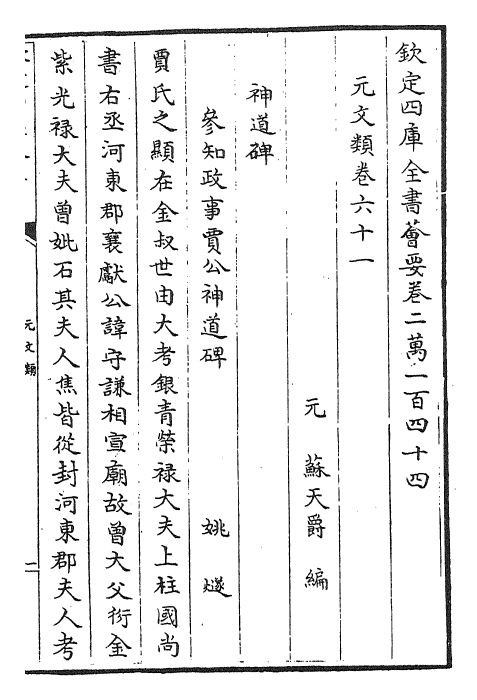 欽定四庫全書薈要卷二萬一百四十四
元文類卷六十一
元 蘇天爵 編
神道碑
參知政事賈公神道碑 姚燧
賈氏之顯在金叔世由大考銀青榮禄大夫上柱國尚
書右丞河東郡襄獻公諱守謙相宣廟故曾大父衍金
紫光禄大夫曾妣石其夫人焦皆從封河東郡夫人考
元文類
二